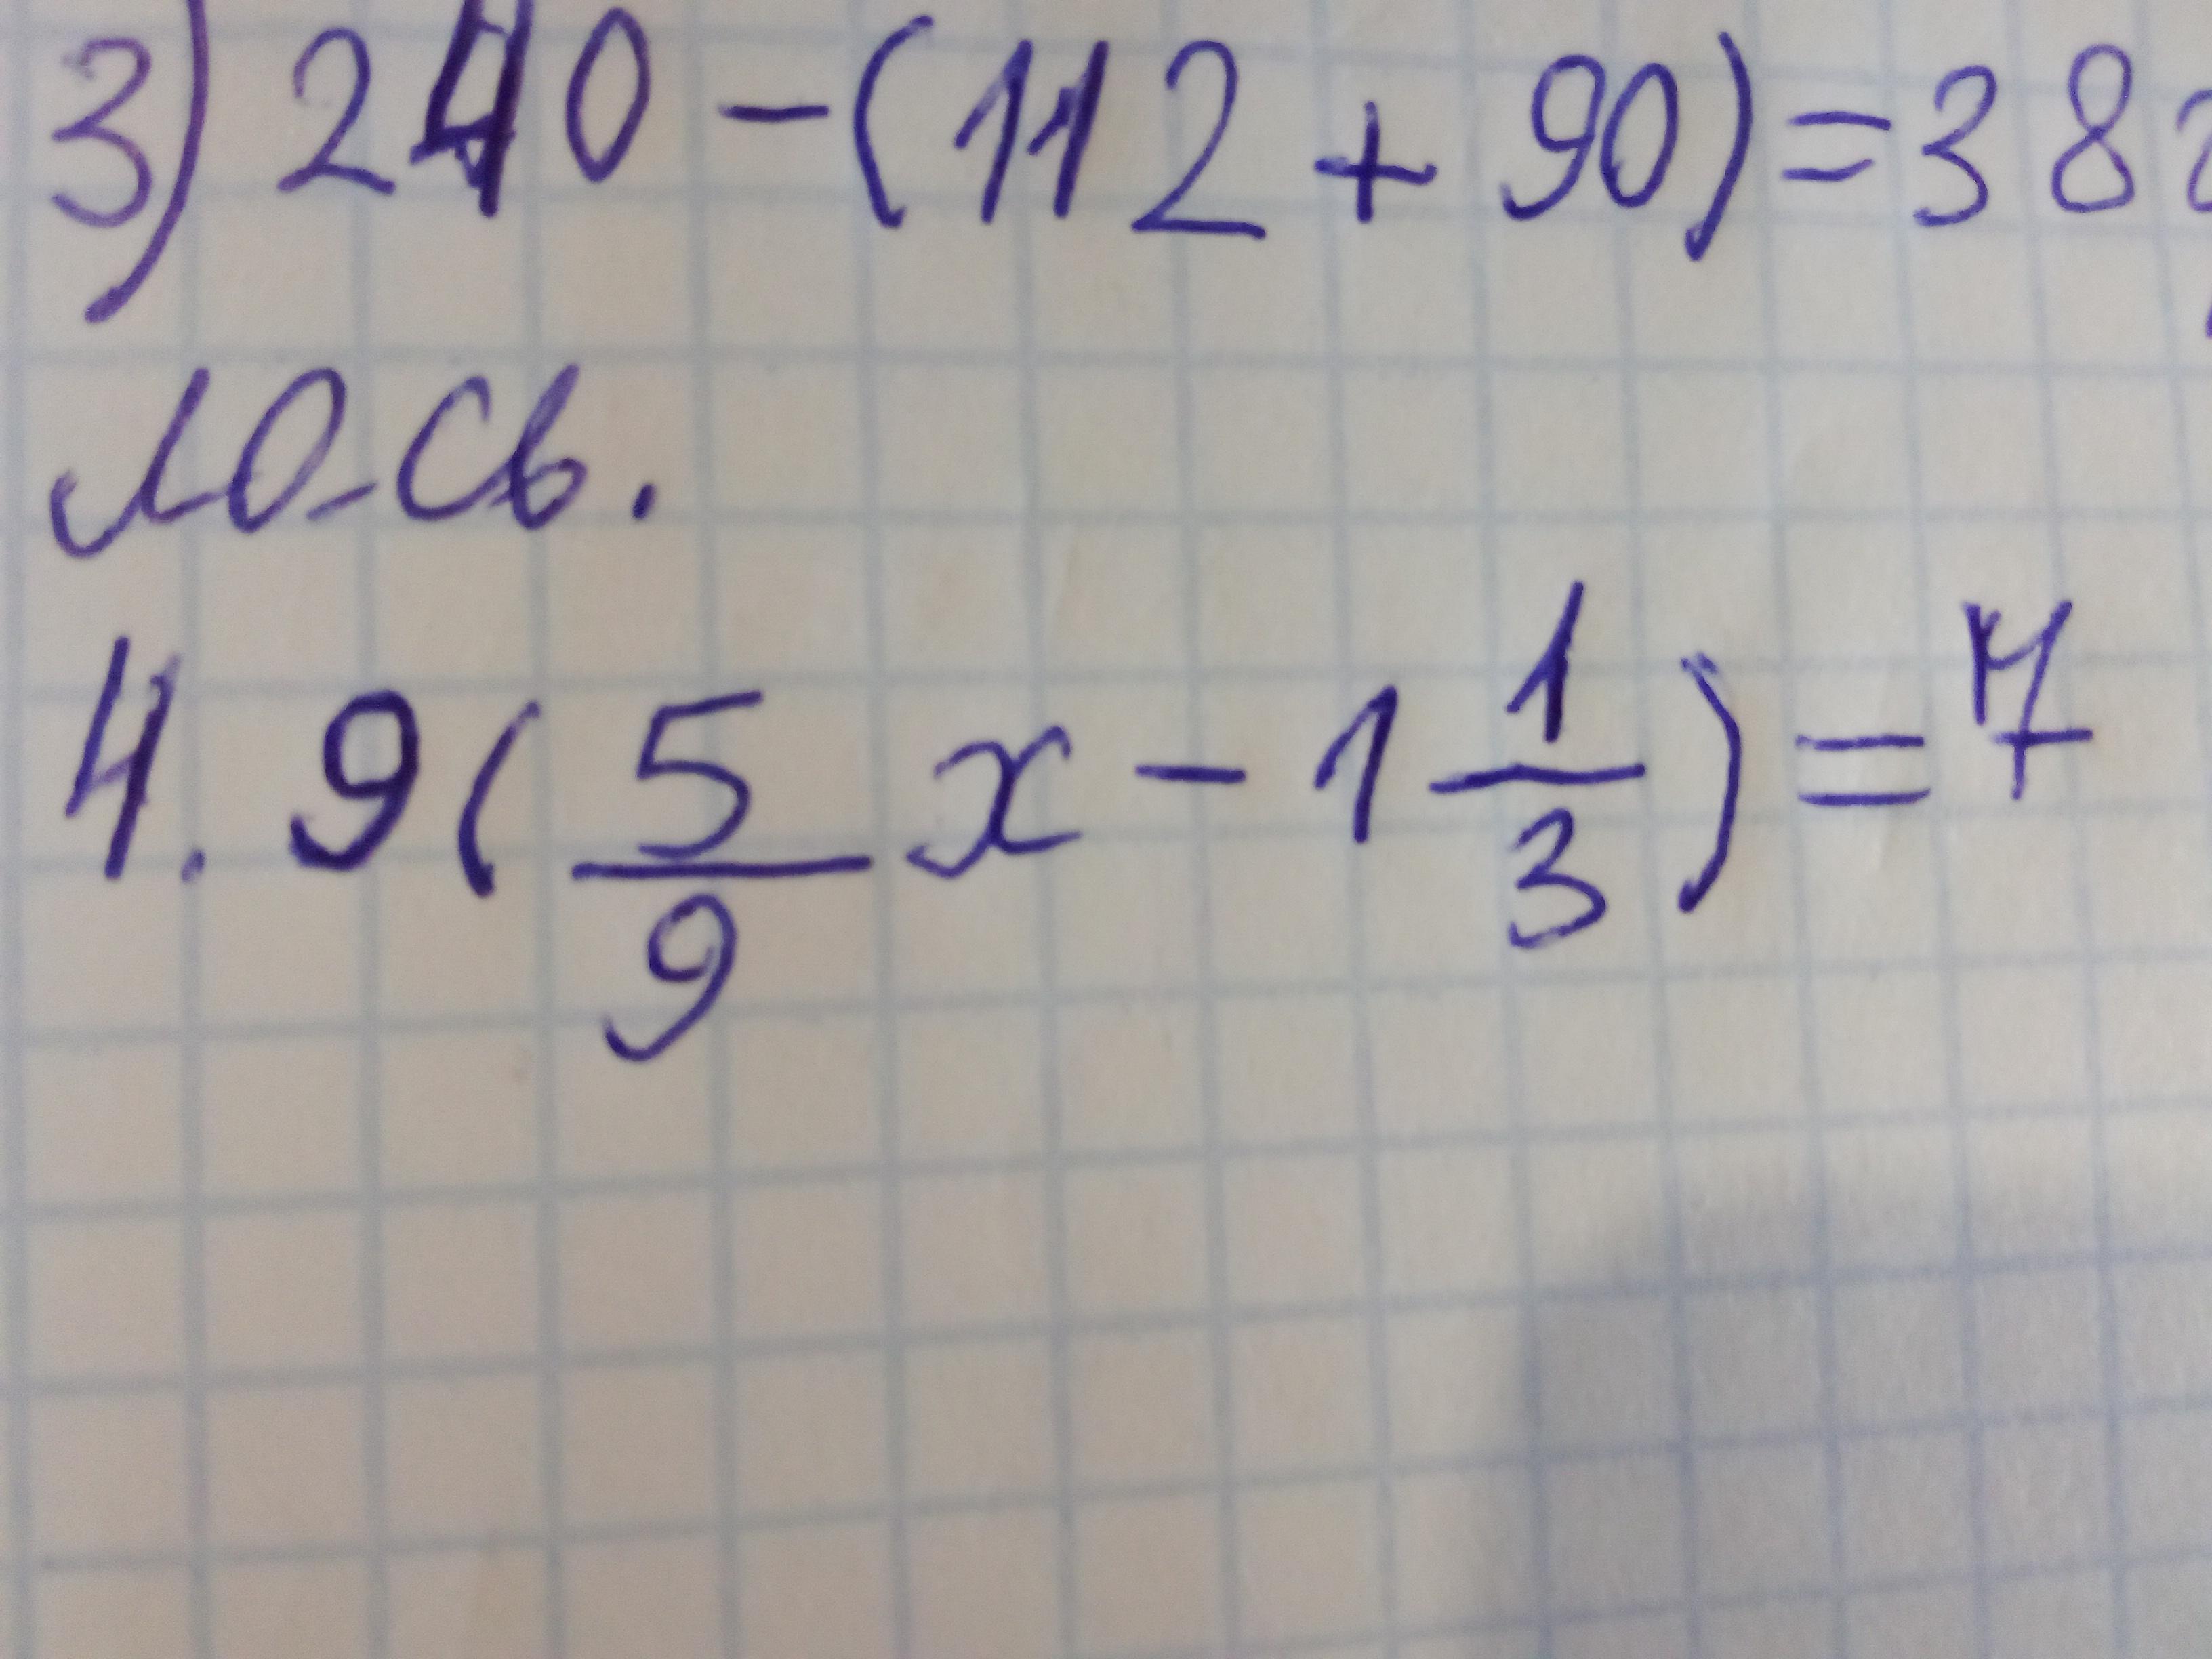 3) 240 - (112 + 90) = 38
ло-сь.
4. 9( 5/9 x - 1 1/3 ) = 7